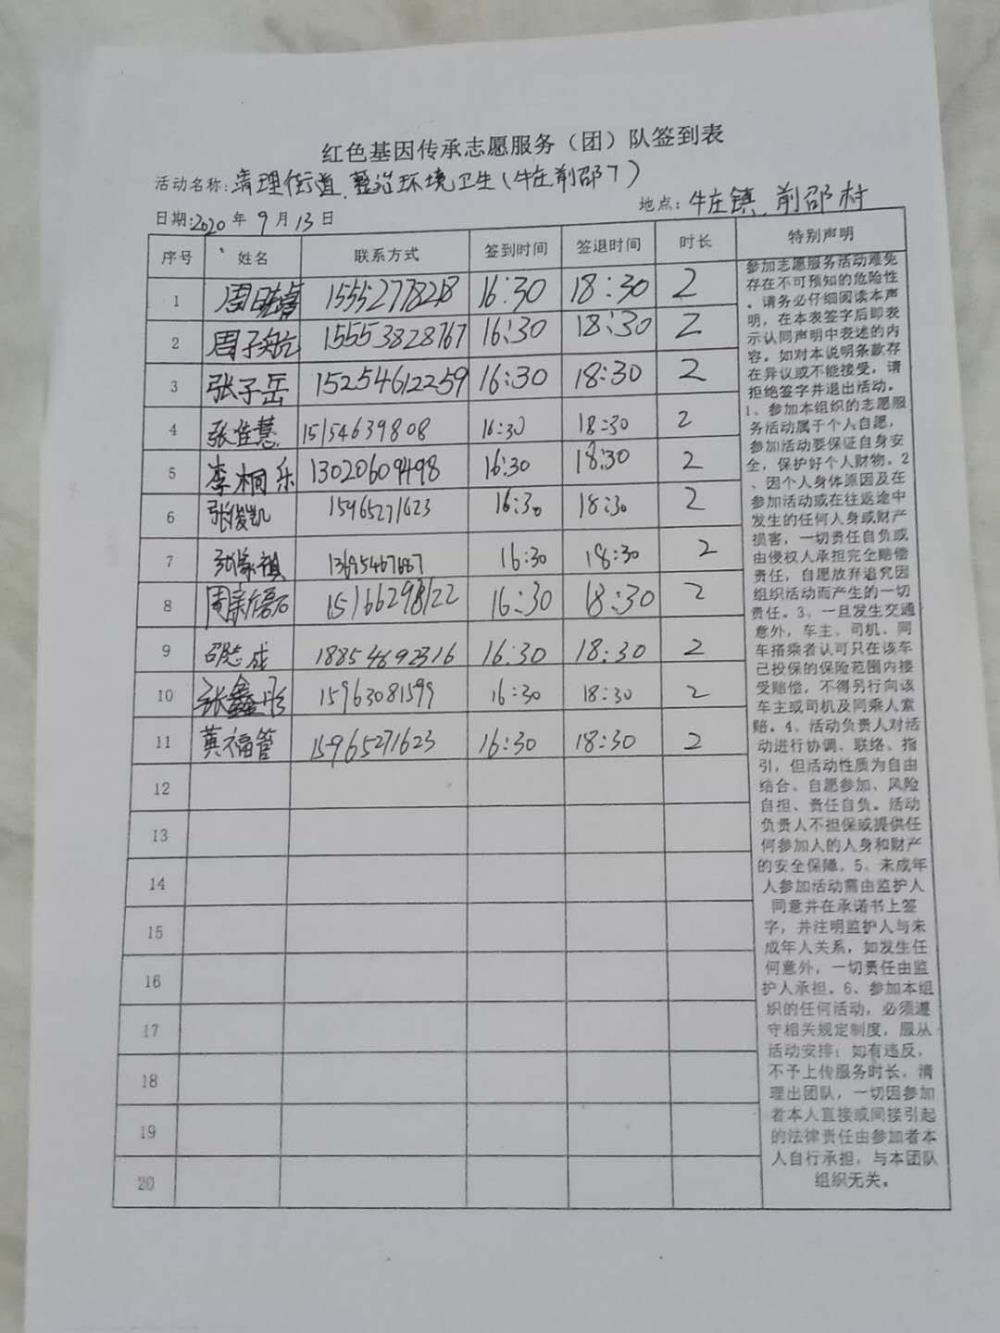 红色基因传承志愿服务（团）队签到表
活动名称:清理街道、整治环境卫生(牛庄前邵7)
日期:2020年9月13日 地点:牛庄镇前邵村
序号 姓名 联系方式 签到时间 签退时间 时长 特别声明
1 周 15552778218 16:30 18:30 2
2 周子航 15553828767 16:30 18:30 2
3 张子岳 15254612259 16:30 18:30 2
4 张佳慧 15154639808 16:30 18:30 2
5 李桐乐 13020609498 16:30 18:30 2
6 张俊凯 15965271623 16:30 18:30 2
7 张家祺 16:30 18:30 2
8 周新磊 15166298122 16:30 18:30 2
9 邵志成 18854692316 16:30 18:30 2
10 张鑫彤 15963081599 16:30 18:30 2
11 黄福管 15965271623 16:30 18:30 2
12
13
14
15
16
17
18
19
20
参加志愿服务活动难免
存在不可预知的危险性
，请务必仔细阅读本声
明，在本表签字后即表
示认同声明中表述的内
容。如对本说明条款存
在异议或不能接受，请
拒绝签字并退出活动。
1、参加本组织的志愿服
务活动属于个人自愿，
参加活动要保证自身安
全，保护好个人财物。2
、因个人身体原因及在
参加活动或在往返途中
发生的任何人身或财产
损害，一切责任自负或
由侵权人承担完全赔偿
责任，自愿放弃追究因
组织活动而产生的一切
责任。3、一旦发生交通
意外，车主、司机、同
车搭乘者认可只在该车
已投保的保险范围内接
受赔偿，不得另行向该
车主或司机及同乘人索
赔。4、活动负责人对活
动进行协调、联络、指
引，但活动性质为自由
结合、自愿参加、风险
自担、责任自负。活动
负责人不担保或提供任
何参加人的人身和财产
的安全保障。5、未成年
人参加活动需由监护人
同意并在承诺书上签
字，并注明监护人与未
成年人关系，如发生任
何意外，一切责任由监
护人承担。6、参加本组
织的任何活动，必须遵
守相关规定制度，服从
活动安排；如有违反，
不予上传服务时长，清
理出团队，一切因参加
者本人直接或间接引起
的法律责任由参加者本
人自行承担，与本团队
组织无关。